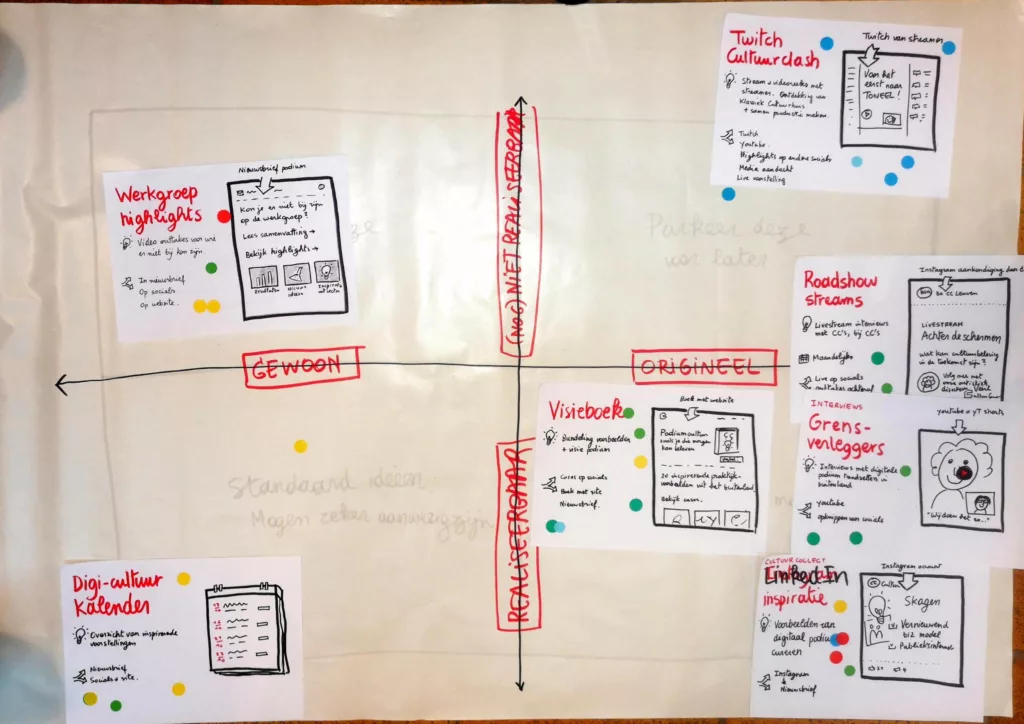 Twitch
Cultuurclash
Twitch van streamer
Stream + videoreeks met
streamers. Ontdekking van
klassiek cultuurhuis
+ samen productie maken.
Twitch
Youtube
Highlights op andere socials
Media aandacht
Live voorstelling
Van het
eerst naar
TONEEL!
(NOG) NIET REALISEERBAAR
Werkgroep
highlights
Video outtakes voor wie
er niet bij kon zijn.
In nieuwsbrief
Op socials
Op website.
Nieuwsbrief podium
Kon je er niet bij zijn
op de werkgroep?
Lees samenvatting →
Bekijk highlights →
Resultaten
Nieuwe
ideeën
Parkeer deze
voor later
Roadshow
streams
Livestream interviews
met CC's, bij CC's
Maandelijks
Live op socials
outtakes achteraf
Instagram aankondiging
CC Leuven
LIVESTREAM
Achter de schermen
wat kan cultuurbeleving
in de toekomst zijn?
GEWOON
ORIGINEEL
Visieboek
Bundeling voorbeelden
+ visie podium
Cases op socials
Boek met site
Nieuwsbrief.
Boek met website
Podiumcultuur
zoals je die morgen
kan beleven
20 inspirerende praktijk-
voorbeelden uit het buitenland.
Bekijk cases.
INTERVIEWS
Grens-
verleggers
Interviews met digitale
podium trendsetters in
buitenland
youtube
opknippen voor socials
youtube + YT shorts
"Wij doen het zo..."
REALISEERBAAR
Standaard ideeën
Mogen zeker aanwezig zijn
Digi-cultuur
Kalender
Overzicht van inspirerende
voorstellingen
Nieuwsbrief
Socials + site.
CULTUUR COLLECT
LinkedIn
inspiratie
Voorbeelden van
digitaal podium
cureren
Instagram
Nieuwsbrief
Instagram account
Skagen
Vernieuwend
biz model